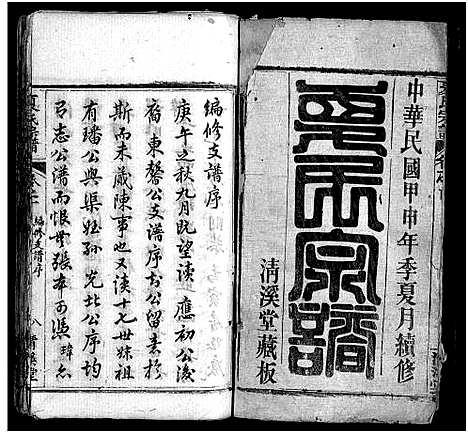 中華民國甲申年季夏月續修
夏氏宗譜
清溪堂藏板
編修支譜序
庚午之秋九月既望讀 應初公後
裔 東馨公支譜序於公留意於
斯而未蕆陳事也又讀十七世妹祖
有璠公與渠姪孫 光北公序均
另志公溥而恨無張本可憑 璋忝
夏氏宗譜
卷之
編修支譜序
八 清溪堂